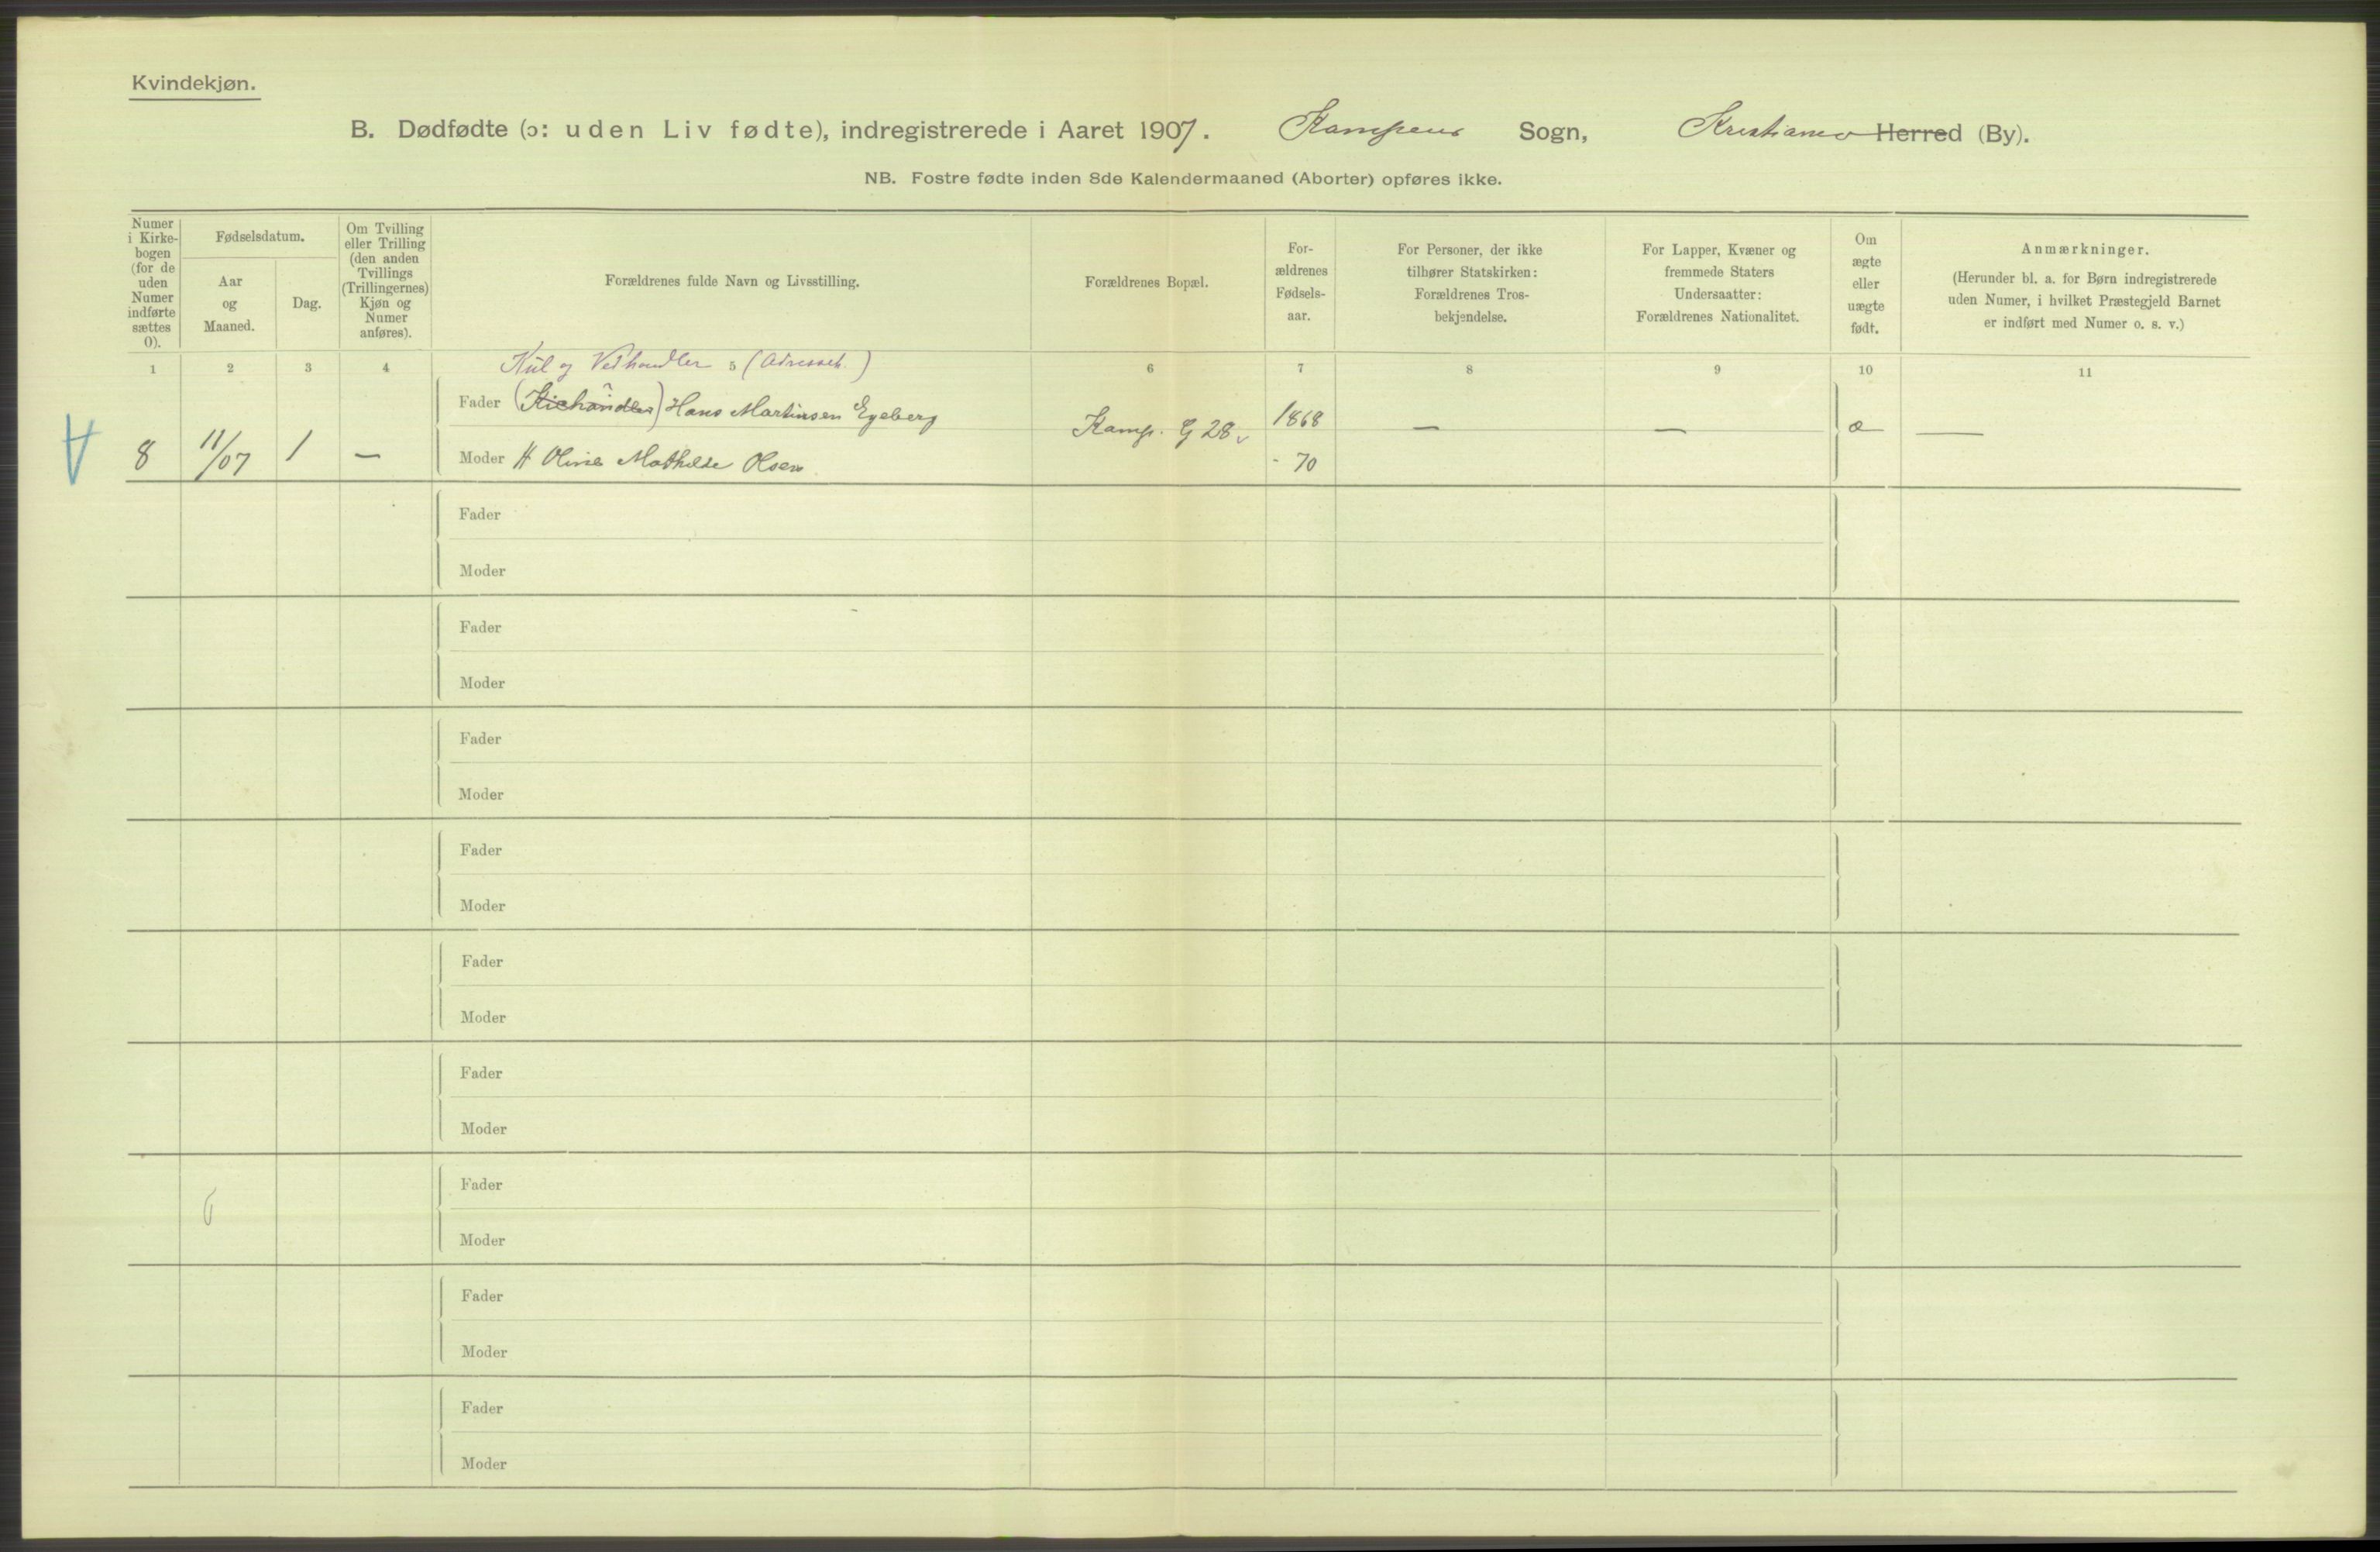 Kvindekjøn.
B. Dødfødte (ɔ: uden Liv fødte), indregistrerede i Aaret 1907. Kampens Sogn, Kristiania Herred (By).
NB. Fostre fødte inden 8de Kalendermaaned (Aborter) opføres ikke.
Numer i Kirkebogen (for de uden Numer indførte sættes 0).
Fødselsdatum.
Aar og Maaned.
Dag.
Om Tvilling eller Trilling (den anden Tvillings (Trillingernes) Kjøn og Numer anføres).
Forældrenes fulde Navn og Livsstilling.
Forældrenes Bopæl.
For-
ældrenes
Fødsels-
aar.
For Personer, der ikke
tilhører Statskirken:
Forældrenes Tros-
bekjendelse.
For Lapper, Kvæner og
fremmede Staters
Undersaatter:
Forældrenes Nationalitet.
Om
ægte
eller
uægte
født.
Anmærkninger.
(Herunder bl. a. for Børn indregistrerede
uden Numer, i hvilket Præstegjeld Barnet
er indført med Numer o. s. v.)
1 2 3 4 5 6 7 8 9 10 11
Kul og Vedhandler (Adresseb.)
Fader Hans Martinsen Egeberg Kamp. G 28 1868 — — æ —
8 11/07 1 — Moder H Oline Mathilde Olsen - 70
Fader
Moder
Fader
Moder
Fader
Moder
Fader
Moder
Fader
Moder
Fader
Moder
Fader
6
Moder
Fader
Moder
Fader
Moder